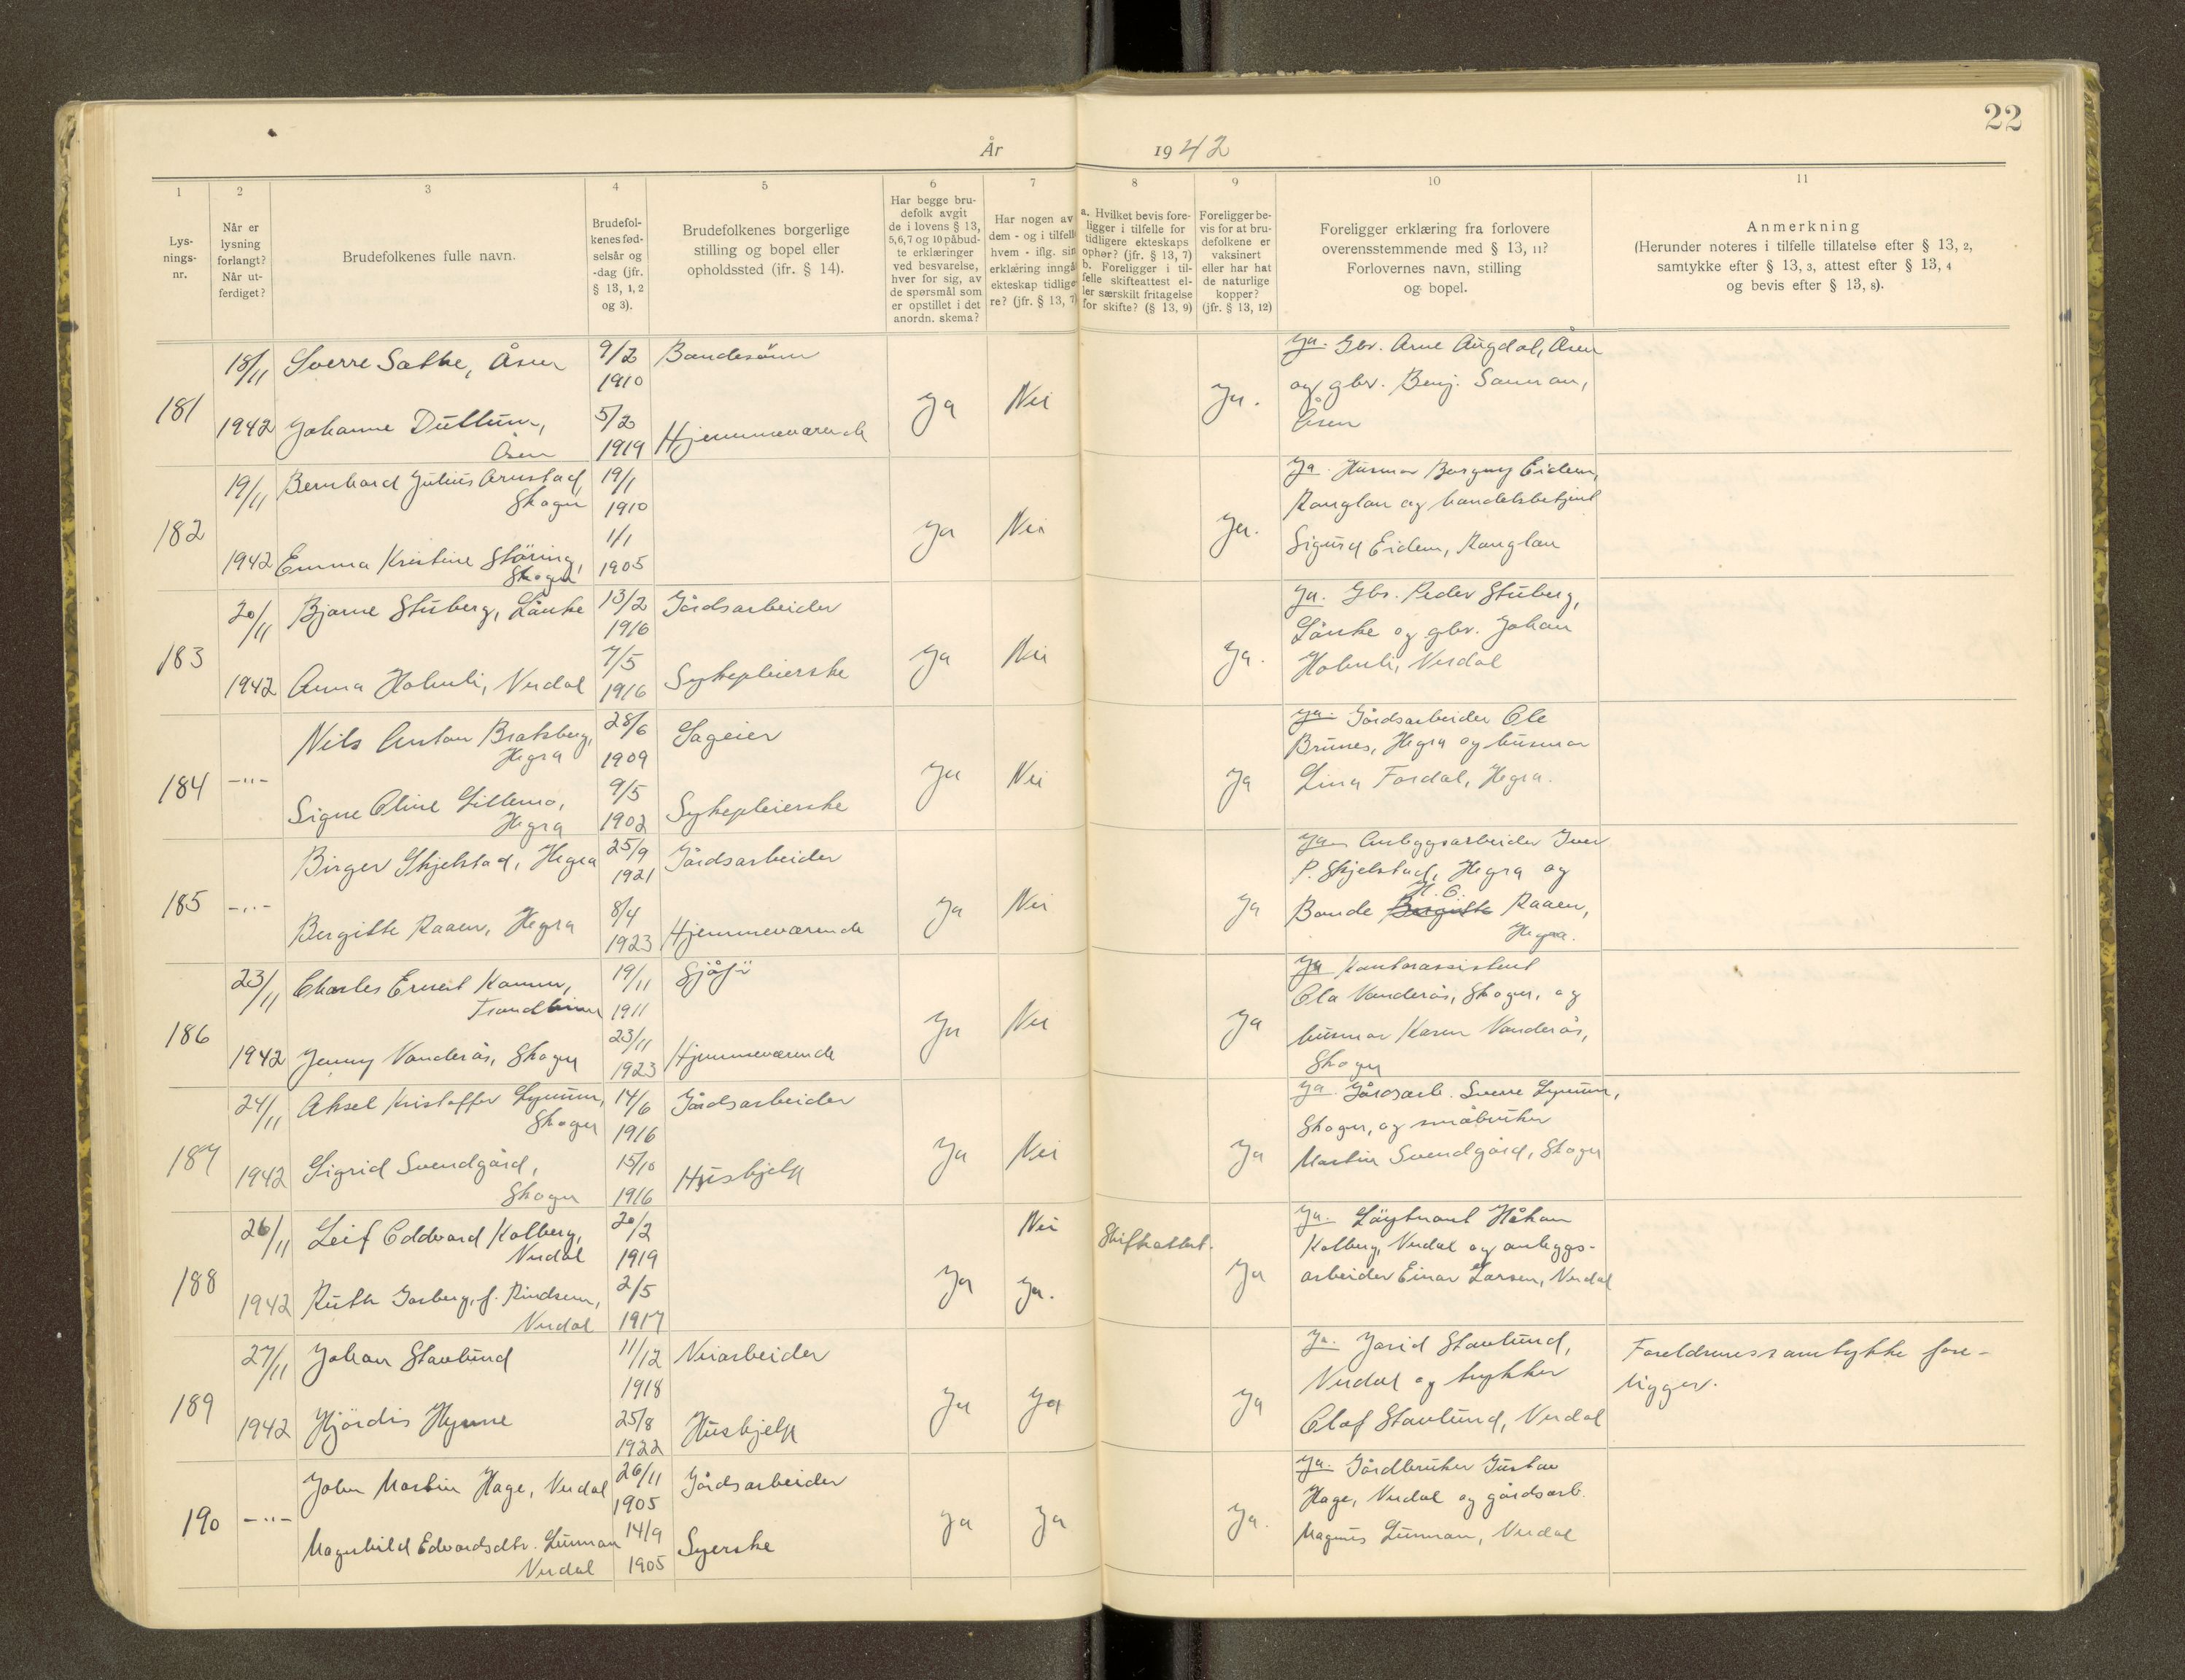 22
År 1942
1 2 3 4 5 6 7 8 9 10 11
Lys-
nings-
nr.
Når er
lysning
forlangt?
Når ut-
ferdiget?
Brudefolkenes fulle navn.
Brudefol-
kenes fød-
selsår og
-dag (jfr.
§ 13, 1, 2
og 3).
Brudefolkenes borgerlige
stilling og bopel eller
opholdssted (ifr. § 14).
Har begge bru-
defolk avgit
de i lovens § 13,
5,6,7 og 10 påbud-
te erklæringer
ved besvarelse,
hver for sig, av
de spørsmål som
er opstillet i det
anordn. skema?
Har nogen av
dem - og i tilfelle
hvem - iflg. sin
erklæring inngå
ekteskap tidlige
re? (jfr. § 13, 7)
a. Hvilket bevis fore-
ligger i tilfelle for
tidligere ekteskaps
ophør? (jfr. § 13, 7)
b. Foreligger i til-
felle skifteattest el-
ler særskilt fritagelse
for skifte? (§ 13, 9)
Foreligger be-
vis for at bru-
defolkene er
vaksinert
eller har hat
de naturlige
kopper?
(jfr. § 13, 12)
Foreligger erklæring fra forlovere
overensstemmende med § 13, 11?
Forlovernes navn, stilling
og bopel.
Anmerkning
(Herunder noteres i tilfelle tillatelse efter § 13, 2,
samtykke efter § 13, 3, attest efter § 13, 4
og bevis efter § 13, 8).
181
18/11
1942
Sverre Sætke, Åsen
Johanne Dullum,
Åsen
9/2
1910
5/2
1919
Bondesönn
Hjemmeværende
Ja
Nei
Ja.
Ja. Gbr. Arne Augdal, Åsen
og gbr. Benj. Sannan,
Åsen
182
19/11
1942
Bernhard Julius Arnstad,
Skogn
Emma Kristine Störing,
Skogn
19/1
1910
1/1
1905
Ja
Nei
Ja.
Ja. Husmor Borgny Eidem,
Ronglan og handelsbetjent
Sigurd Eidem, Ronglan
183
20/11
1942
Bjarne Stuberg, Lånke
Anna Holmli, Verdal
13/2
1916
7/5
1916
Gårdsarbeider
Sykepleierske
Ja
Nei
Ja.
Ja. Gbr. Peder Stuberg,
Lånke og gbr. Johan
Holmli, Verdal
184
-"-
Nils Anton Bratsberg,
Hegra
Signe Oline Lillemo,
Hegra
28/6
1909
9/5
1902
Sageier
Sykepleierske
Ja
Nei
Ja
Ja. Gårdsarbeider Ole
Brunes, Hegra og husmor
Lina Fordal, Hegra.
185
-"-
Birger Skjelstad, Hegra
Bergitte Raaen, Hegra
25/9
1921
8/4
1923
Gårdsarbeider
Hjemmeværende
Ja
Nei
Ja
Ja Anleggsarbeider Iver
P. Skjelstad, Hegra og
H. O.
Bonde Bergitte Raaen,
Hegra.
186
23/11
1942
Charles Ernest Kamm,
Trondheim
Jenny Vanderås, Skogn
19/11
1911
23/11
1923
Sjåfør
Hjemmeværende
Ja
Nei
Ja
Ja Kontorassistent
Ola Vanderås, Skogn, og
husmor Karen Vanderås,
Skogn
187
24/11
1942
Aksel Kristoffer Lynum,
Skogn
Sigrid Svendgård,
Skogn
14/6
1916
15/10
1916
Gårdsarbeider
Hushjelp
Ja
Nei
Ja
Ja. Gårdsarb. Sverre Lynum,
Skogn, og småbruker
Martin Svendgård, Skogn
188
26/11
1942
Leif Oddvard Kolberg,
Verdal
Ruth Garberg, f. Rindsem,
Verdal
20/2
1919
2/5
1917
Ja
Nei
Ja.
Skifteattest.
Ja
Ja. Löytnant Håkon
Kolberg, Verdal og anleggs-
arbeider Einar Larsen, Verdal
189
27/11
1942
Johan Stavlund
Hjördis Hynne
11/12
1918
25/8
1922
Veiarbeider
Hushjelp
Ja
Ja
Ja
Ja. Jorid Stavlund,
Verdal og trykker
Olaf Stavlund, Verdal
Foreldrenes samtykke fore-
ligger.
190
-"-
John Martin Hage, Verdal
Magnhild Edvardsdtr. Lunnan
Verdal
26/11
1905
14/9
1905
Gårdsarbeider
Syerske
Ja
Ja
Ja.
Ja. Gårdbruker Gustav
Hage, Verdal og gårdsarb.
Magnus Lunnan, Verdal